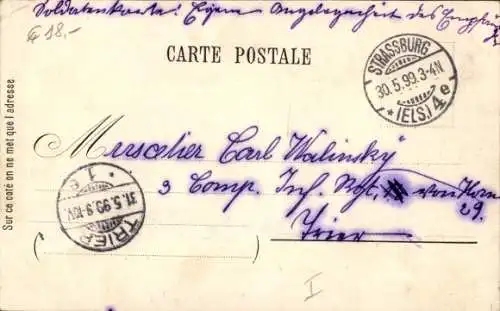 Soldatenkarte! Eigene Angelegenheit des Empfängers
€ 18,-
CARTE POSTALE
STRASSBURG
30.5.99.3-4N
* (ELS.) 4e
Sur ce côté on ne met que l'adresse
Musketier Carl Walinsky
3 Comp. Inf. Rgt. von Horn
29.
Trier
TRIER
31.5.99.9-10V
* 1e
I